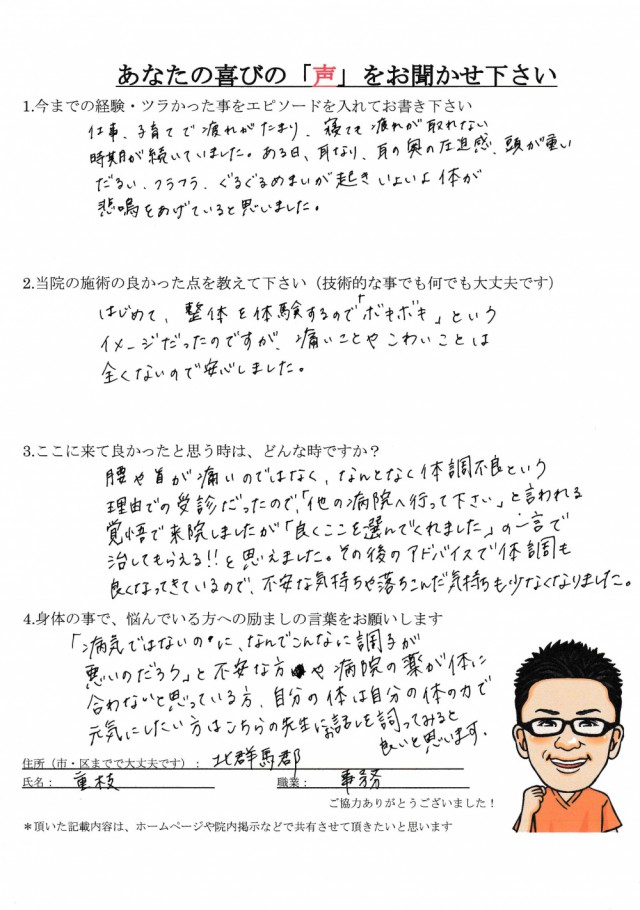 あなたの喜びの「声」をお聞かせ下さい
1.今までの経験・ツラかった事をエピソードを入れてお書き下さい
仕事、子育てで疲れがたまり、寝ても疲れが取れない
時期が続いていました。ある日、耳なり、耳の奥の圧迫感、頭が重い
だるい、フラフラ、ぐるぐるめまいが起きいよいよ体が
悲鳴をあげていると思いました。
2.当院の施術の良かった点を教えて下さい（技術的な事でも何でも大丈夫です）
はじめて、整体を体験するので「ボキボキ」という
イメージだったのですが、痛いことやこわいことは
全くないので安心しました。
3.ここに来て良かったと思う時は、どんな時ですか？
腰や首が痛いのではなく、なんとなく体調不良という
理由での受診だったので、「他の病院へ行って下さい」と言われる
覚悟で来院しましたが「良くここを選んでくれました」の一言で
治してもらえる!!と思えました。その後のアドバイスで体調も
良くなってきているので、不安な気持ちや落ちこんだ気持ちも少なくなりました。
4.身体の事で、悩んでいる方への励ましの言葉をお願いします
「病気ではないのに、なんでこんなに調子が
悪いのだろう」と不安な方や病院の薬が体に
合わないと思っている方、自分の体は自分の体の力で
元気にしたい方はこちらの先生にお話しを詞ってみると
良いと思います。
住所（市・区までで大丈夫です）：北群馬郡
氏名：重枝 職業：事務
ご協力ありがとうございました！
＊頂いた記載内容は、ホームページや院内掲示などで共有させて頂きたいと思います